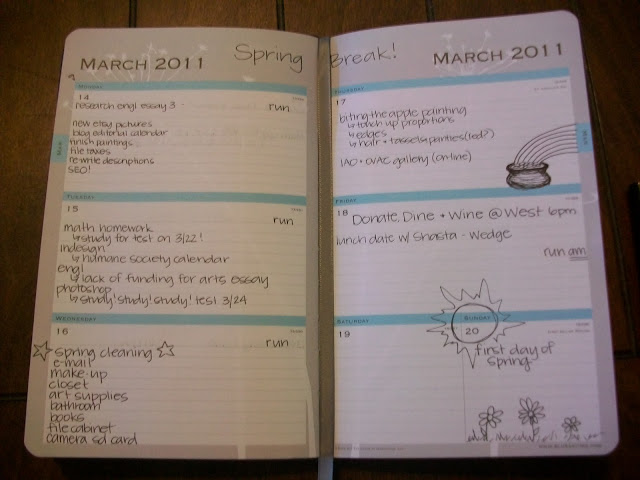 Spring Break!
MARCH 2011
MONDAY
14
research engl essay 3
run
new etsy pictures
blog editorial calendar
finish paintings
file taxes
re-write descriptions
SEO!
TUESDAY
15
run
math homework
↳ study for test on 3/22!
indesign
↳ humane society calendar
engl
↳ lack of funding for arts essay
photoshop
↳ study! study! study! test 3/24
WEDNESDAY
16
run
☆ spring cleaning ☆
e-mail
make-up
closet
art supplies
bathroom
books
file cabinet
camera sd card
MARCH 2011
THURSDAY
17
biting the apple painting
↳ touch up proportions
↳ edges
↳ hair + tassels + panties (led?)
IAO + OVAC gallery (online)
FRIDAY
18 Donate, Dine + Wine @ West 6pm
lunch date w/ Shasta - Wedge
run am
SATURDAY
19
SUNDAY
20
first day of
spring